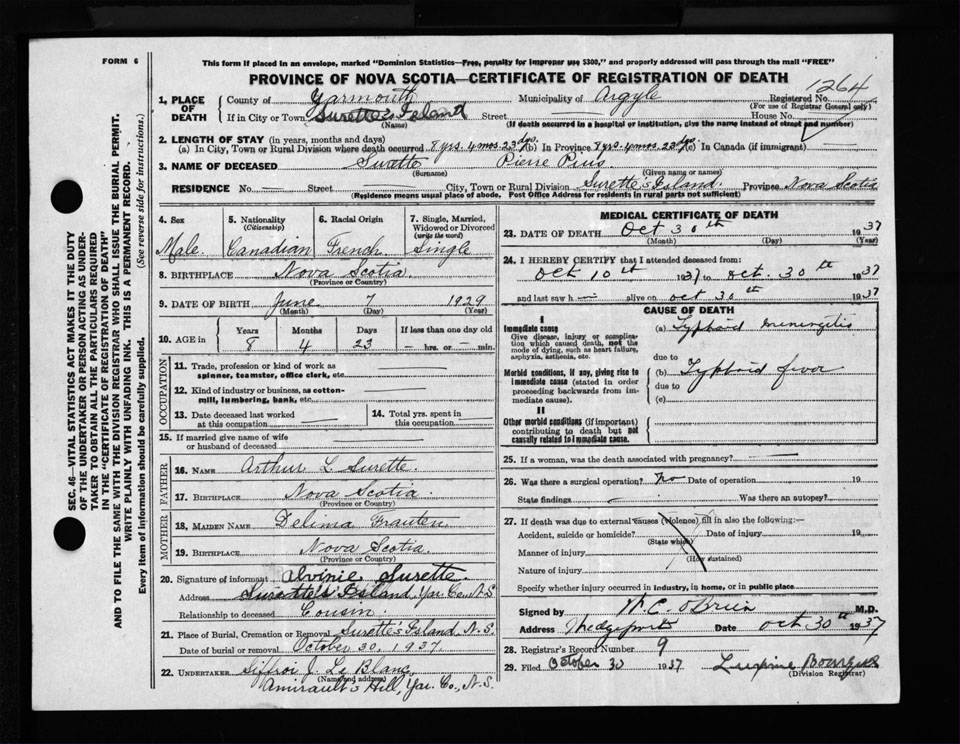 FORM 6
This form if placed in an envelope, marked "Dominion Statistics—Free, penalty for improper use $300," and properly addressed will pass through the mail "FREE"
PROVINCE OF NOVA SCOTIA—CERTIFICATE OF REGISTRATION OF DEATH
1264
1. PLACE OF DEATH
County of Yarmouth Municipality of Argyle Registered No.
(For use of Registrar General only)
If in City or Town Surette's Island Street — House No.
(Name) (If death occurred in a hospital or institution, give the name instead of street and number)
2. LENGTH OF STAY (in years, months and days)
(a) In City, Town or Rural Division where death occurred 8 yrs. 4 mos. 23 dys. (b) In Province 8 yrs. 4 mos. 23 dys. (c) In Canada (if immigrant) —
3. NAME OF DECEASED Surette Pierre Pius
(Surname) (Given name or names)
RESIDENCE No. — Street — City, Town or Rural Division Surette's Island. Province Nova Scotia
(Residence means usual place of abode. Post Office Address for residents in rural parts not sufficient)
4. Sex 5. Nationality (Citizenship) 6. Racial Origin 7. Single, Married, Widowed or Divorced (write the word)
Male. Canadian French Single
8. BIRTHPLACE Nova Scotia.
(Province or Country)
9. DATE OF BIRTH June 7 1929
(Month) (Day) (Year)
10. AGE in Years Months Days If less than one day old
8 4 23 — hrs. or — min.
OCCUPATION
11. Trade, profession or kind of work as spinner, teamster, office clerk, etc.
12. Kind of industry or business, as cotton-mill, lumbering, bank, etc.
13. Date deceased last worked at this occupation
14. Total yrs. spent in this occupation
15. If married give name of wife or husband of deceased
FATHER
16. NAME Arthur L. Surette.
17. BIRTHPLACE Nova Scotia.
(Province or Country)
MOTHER
18. MAIDEN NAME Delima
19. BIRTHPLACE Nova Scotia.
(Province or Country)
20. Signature of informant Alvinie Surette.
Address Surette's Island, Yar. Co., N.S.
Relationship to deceased Cousin.
21. Place of Burial, Cremation or Removal Surette's Island, N.S.
Date of burial or removal October 30, 1937.
22. UNDERTAKER Siffroi J. Le Blanc,
(Name and address)
Amirault's Hill, Yar. Co., N.S.
MEDICAL CERTIFICATE OF DEATH
23. DATE OF DEATH Oct 30th 1937
(Month) (Day) (Year)
24. I HEREBY CERTIFY that I attended deceased from:
Oct 10th 1937 to oct. 30th 1937
and last saw h — alive on oct 30th 1937
CAUSE OF DEATH
I
Immediate cause
Give disease, injury or complication which caused death, not the mode of dying, such as heart failure, asphyxia, asthenia, etc.
(a) Typhoid meningitis
due to
Morbid conditions, if any, giving rise to immediate cause (stated in order proceeding backwards from immediate cause).
(b) Typhoid fever
due to
(c)
II
Other morbid conditions (if important) contributing to death but not causally related to immediate cause.
25. If a woman, was the death associated with pregnancy? —
26. Was there a surgical operation? No Date of operation 19
State findings — Was there an autopsy?
27. If death was due to external causes (violence), fill in also the following:—
Accident, suicide or homicide? Date of injury 19
(State which)
Manner of injury
(How sustained)
Nature of injury
Specify whether injury occurred in industry, in home, or in public place
Signed by W. C. O'Brien M.D.
Address Wedgeport Date oct 30th 1937
28. Registrar's Record Number 9
29. Filed October 30 1937
(Division Registrar)
SEC. 46—VITAL STATISTICS ACT MAKES IT THE DUTY
OF THE UNDERTAKER OR PERSON ACTING AS UNDER-
TAKER TO OBTAIN ALL THE PARTICULARS REQUIRED
IN THE "CERTIFICATE OF REGISTRATION OF DEATH"
AND TO FILE THE SAME WITH THE DIVISION REGISTRAR WHO SHALL ISSUE THE BURIAL PERMIT.
WRITE PLAINLY WITH UNFADING INK. THIS IS A PERMANENT RECORD.
Every item of Information should be carefully supplied. (See reverse side for instructions.)